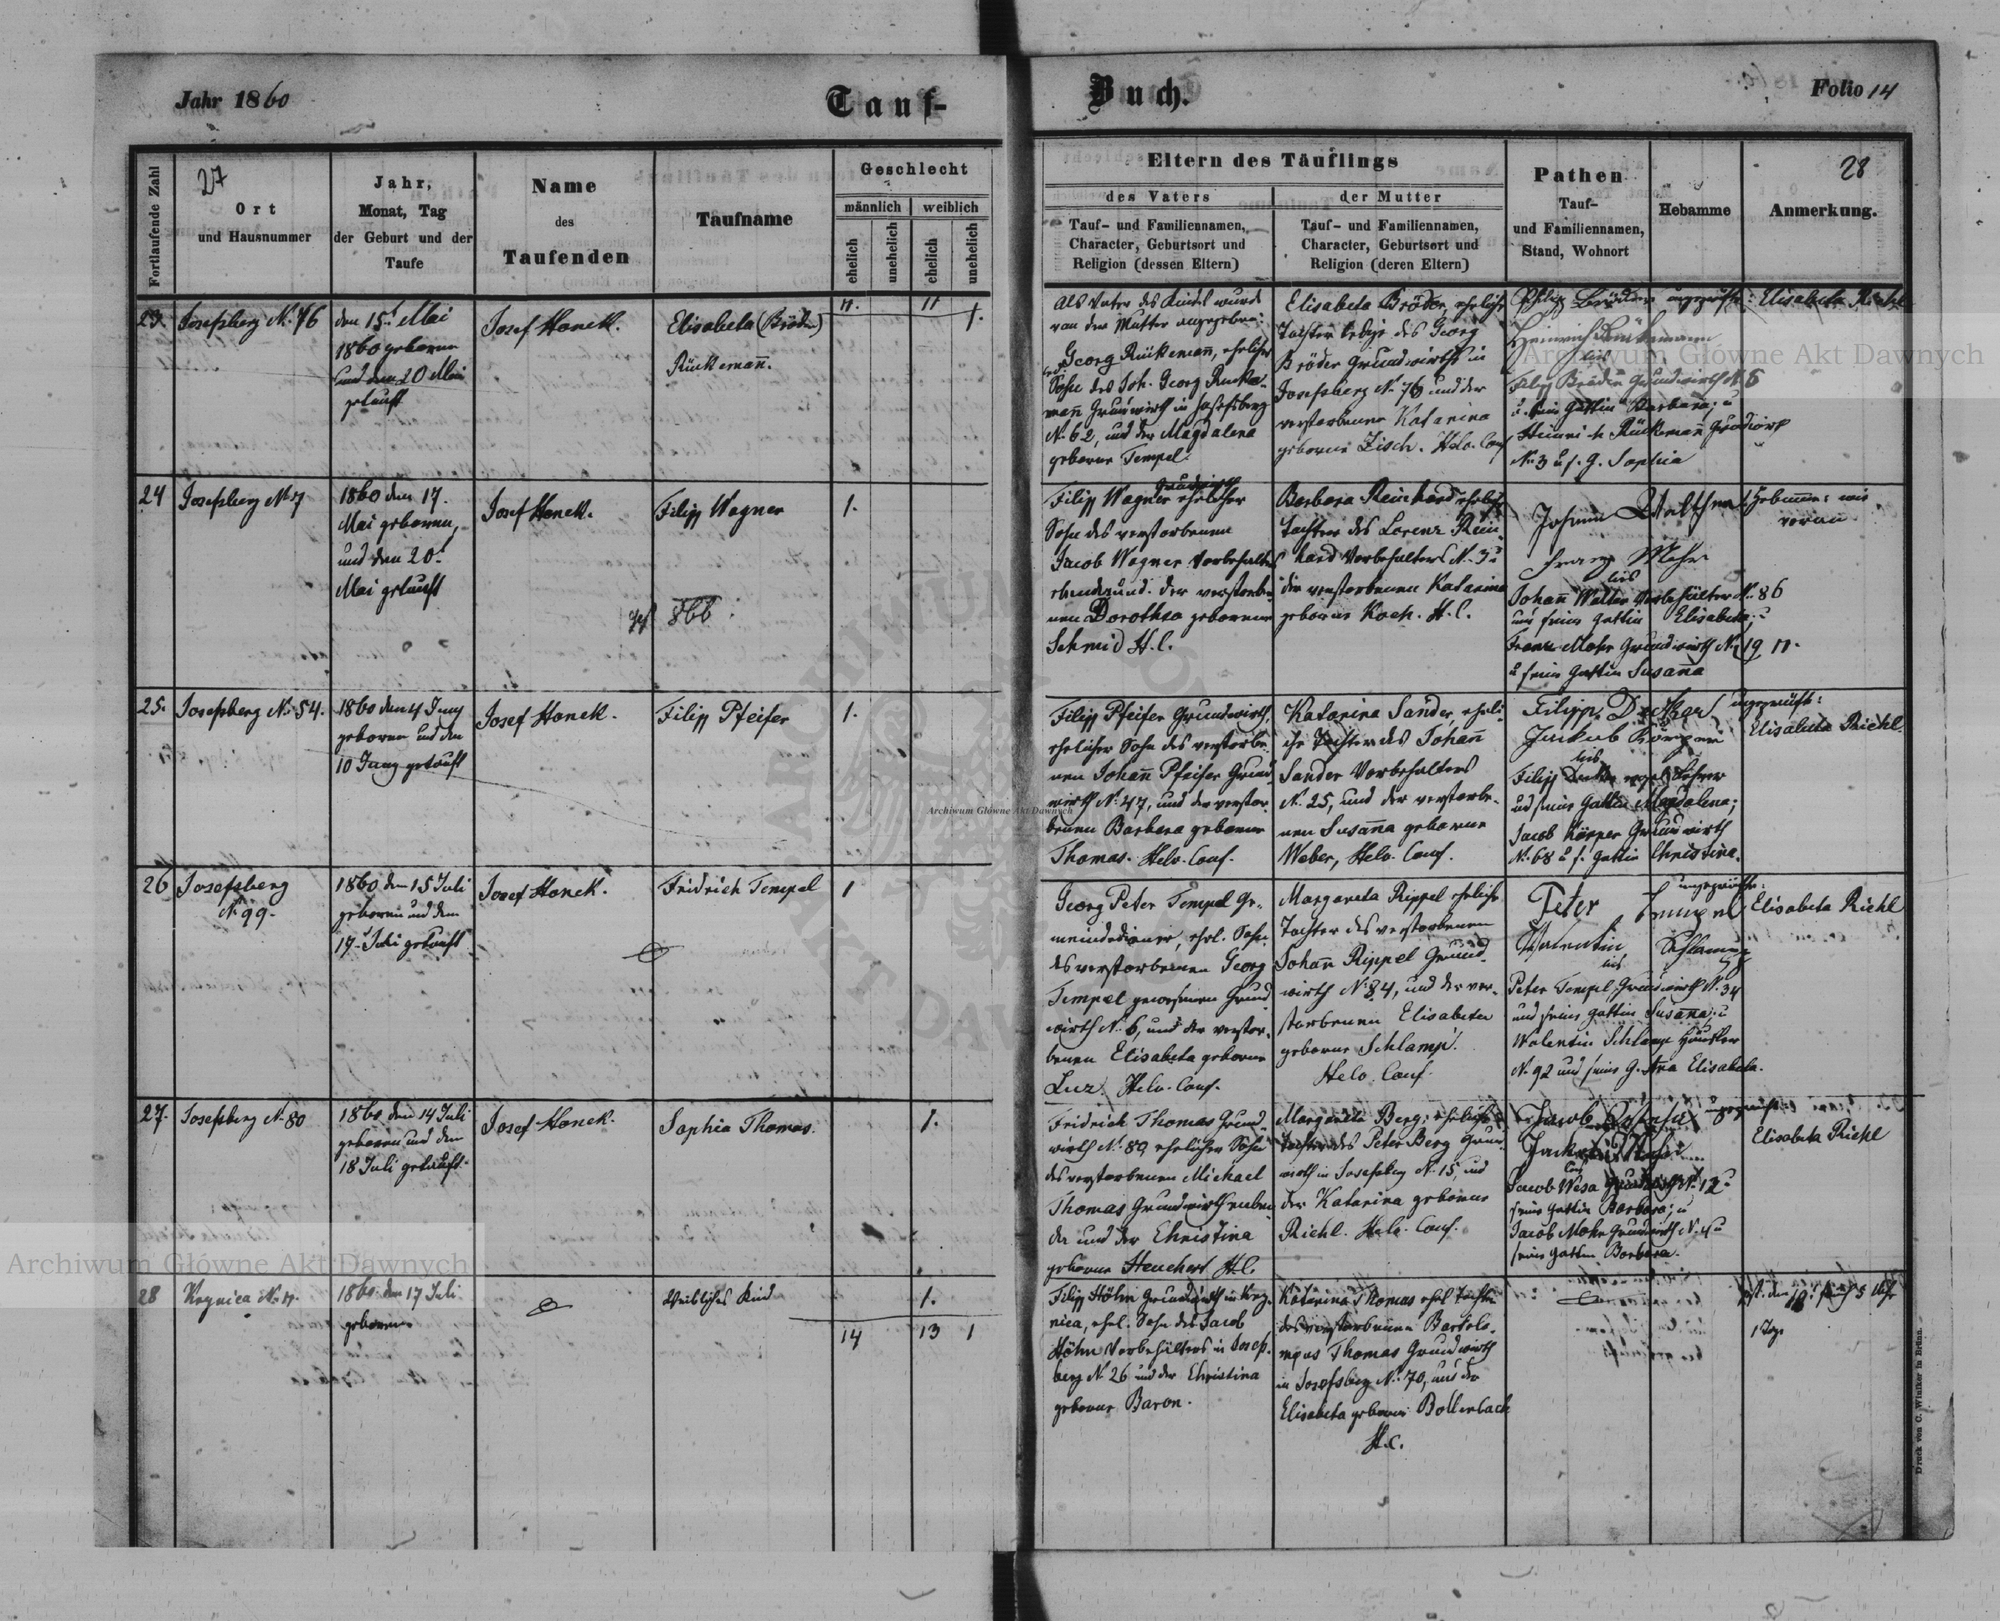 Jahr 1860
Tauf-
Buch.
Folio 14
Fortlaufende Zahl
27
Ort
und Hausnummer
Jahr,
Monat, Tag
der Geburt und der
Taufe
Name
des
Taufenden
Taufname
Geschlecht
männlich
weiblich
ehelich
unehelich
ehelich
unehelich
Eltern des Täuflings
des Vaters
der Mutter
Tauf- und Familiennamen,
Character, Geburtsort und
Religion (dessen Eltern)
Tauf- und Familiennamen,
Character, Geburtsort und
Religion (deren Eltern)
Pathen
Tauf-
und Familiennamen,
Stand, Wohnort
Hebamme
28
Anmerkung.
23.
Josefsberg N. 76
den 15t Mai
1860 geboren
und den 20 Mai
getauft
Josef Hanek.
Elisabeta (Bröder)
Rückemann̄.
11.
11
1.
Als Vater des Kindes wurde
von der Mutter angegeben:
Georg Rückemann̄, ehelicher
Sohn des Joh. Georg Rücke-
man̄ Grundwirth in Josefsberg
N. 62, und der Magdalena
geborne Tempel.
Elisabeta Bröder, eheliche
Tochter des Georg
Bröder Grundwirths in
Josefsberg N. 76 und der
verstorbenen Katarina
geborne Zisch. Helv. Conf
Philip Bröder
Heinrich Rückemann
Filip Bröder Grundwirth N. 5
u. seine Gattin Barbara; u
Heinrich Rückeman̄
N. 3 u s. G. Sophia
ungeprüfte: Elisabeta Riehl
24
Josefsberg N. 7
1860 den 17.
Mai geboren,
und den 20t
Mai getauft
Josef Hanek.
Filipp Wagner
866
1.
Filipp Wagner Grundwirth ehelicher
Sohn des verstorbenen
Jacob Wagner Vorbehalters
und der verstorbe-
nen Dorothea geborenen
Schmid H. C.
Barbara Reinhard eheliche
Tochter des Lorenz Rein-
hard Vorbehalters N. 3 u
der verstorbenen Katarina
geborne Koch. H. C.
Johann Walther
Franz Mohr
Johan̄ Walter Vorbehälter N. 86
und seine Gattin Elisabeta; u
Franz Mohr Grundwirth N. 19
u seine Gattin Susan̄a
Hebamme: wie
voran
25.
Josefsberg N. 54.
1860 den 4 Juny
geboren und den
10 Juny getauft
Josef Hanek.
Filipp Pfeifer
1.
Filipp Pfeifer Grundwirth,
ehelicher Sohn des verstorbe-
nen Johan̄ Pfeifer Grund-
wirth N. 47, und der verstor-
benen Barbara geborne
Thomas. Helv. Conf.
Katarina Sander, eheli-
che Tochter des Johan̄
Sander Vorbehalters
N. 25, und der verstorbe-
nen Susan̄a geborne
Weber, Helv. Conf.
Filipp Decker
Jakob Köpper
und seine Gattin Magdalena;
Jacob Köpper Grundwirth
N. 68 u s. Gattin Christina.
ungeprüft:
Elisabeta Riehl.
26
Josefsberg
N. 99.
1860 den 15 Juli
geboren und den
17. Juli getauft
Josef Hanek.
Fridrich Tempel
1
Georg Peter Tempel Ge-
meindediener, ehel. Sohn
des verstorbenen Georg
Tempel gewesenen Grund-
wirth N. 6, und der verstor-
benen Elisabeta geborne
Luz. Helv. Conf.
Margareta Rippel eheliche
Tochter des verstorbenen
Johan̄ Rippel Grund-
wirth N. 84, und der ver-
storbenen Elisabeta
geborne Schlamp.
Helv. Conf.
Peter Tempel
Valentin Schlamp
Peter Tempel, Grundwirth N. 34
und seine Gattin Susan̄a; u
Valentin Schlamp Häusler
N. 92 und seine G. An̄a Elisabeta.
ungeprüfte:
Elisabeta Riehl
27.
Josefsberg N. 80
1860 den 14 Juli
geboren und den
18 Juli getauft.
Josef Hanek.
Sophia Thomas.
1.
Fridrich Thomas Grund-
wirth N. 80, ehelicher Sohn
des verstorbenen Michael
Thomas Grundwirth
und der Christina
geborne Heuchert H. C.
Margareta Berg; eheliche
Tochter des Peter Berg Grund-
wirth in Josefsberg N. 15, und
der Katarina geborne
Riehl. Helv. Conf.
Jacob Wesa Grundwirth N. 12 u
seine Gattin Barbara; u
Jacob Mohr Grundwirth N. 4 u
seine Gattin Barbara.
ungeprüfte
Elisabeta Riehl
28
Ugnica N. 11.
1860. den 17 Juli
geboren
Weibliches Kind
1.
14
13
1
Filipp Höhn Grundwirth in Ug-
nica, ehel. Sohn des Jacob
Höhn Vorbehälters in Josefs-
berg N. 26 und der Christina
geborne Baron.
Katarina Thomas ehel. Tochter
des verstorbenen Bartolo-
mäus Thomas Grundwirth
in Josefsberg N. 70, und der
Elisabeta geborne Bollenbach
H. C.
gest. den 18t früh 5 Uhr
1 Tag
Druck von C. Winiker in Brünn.
Archiwum Główne Akt Dawnych
Archiwum Główne Akt Dawnych
Archiwum Główne Akt Dawnych